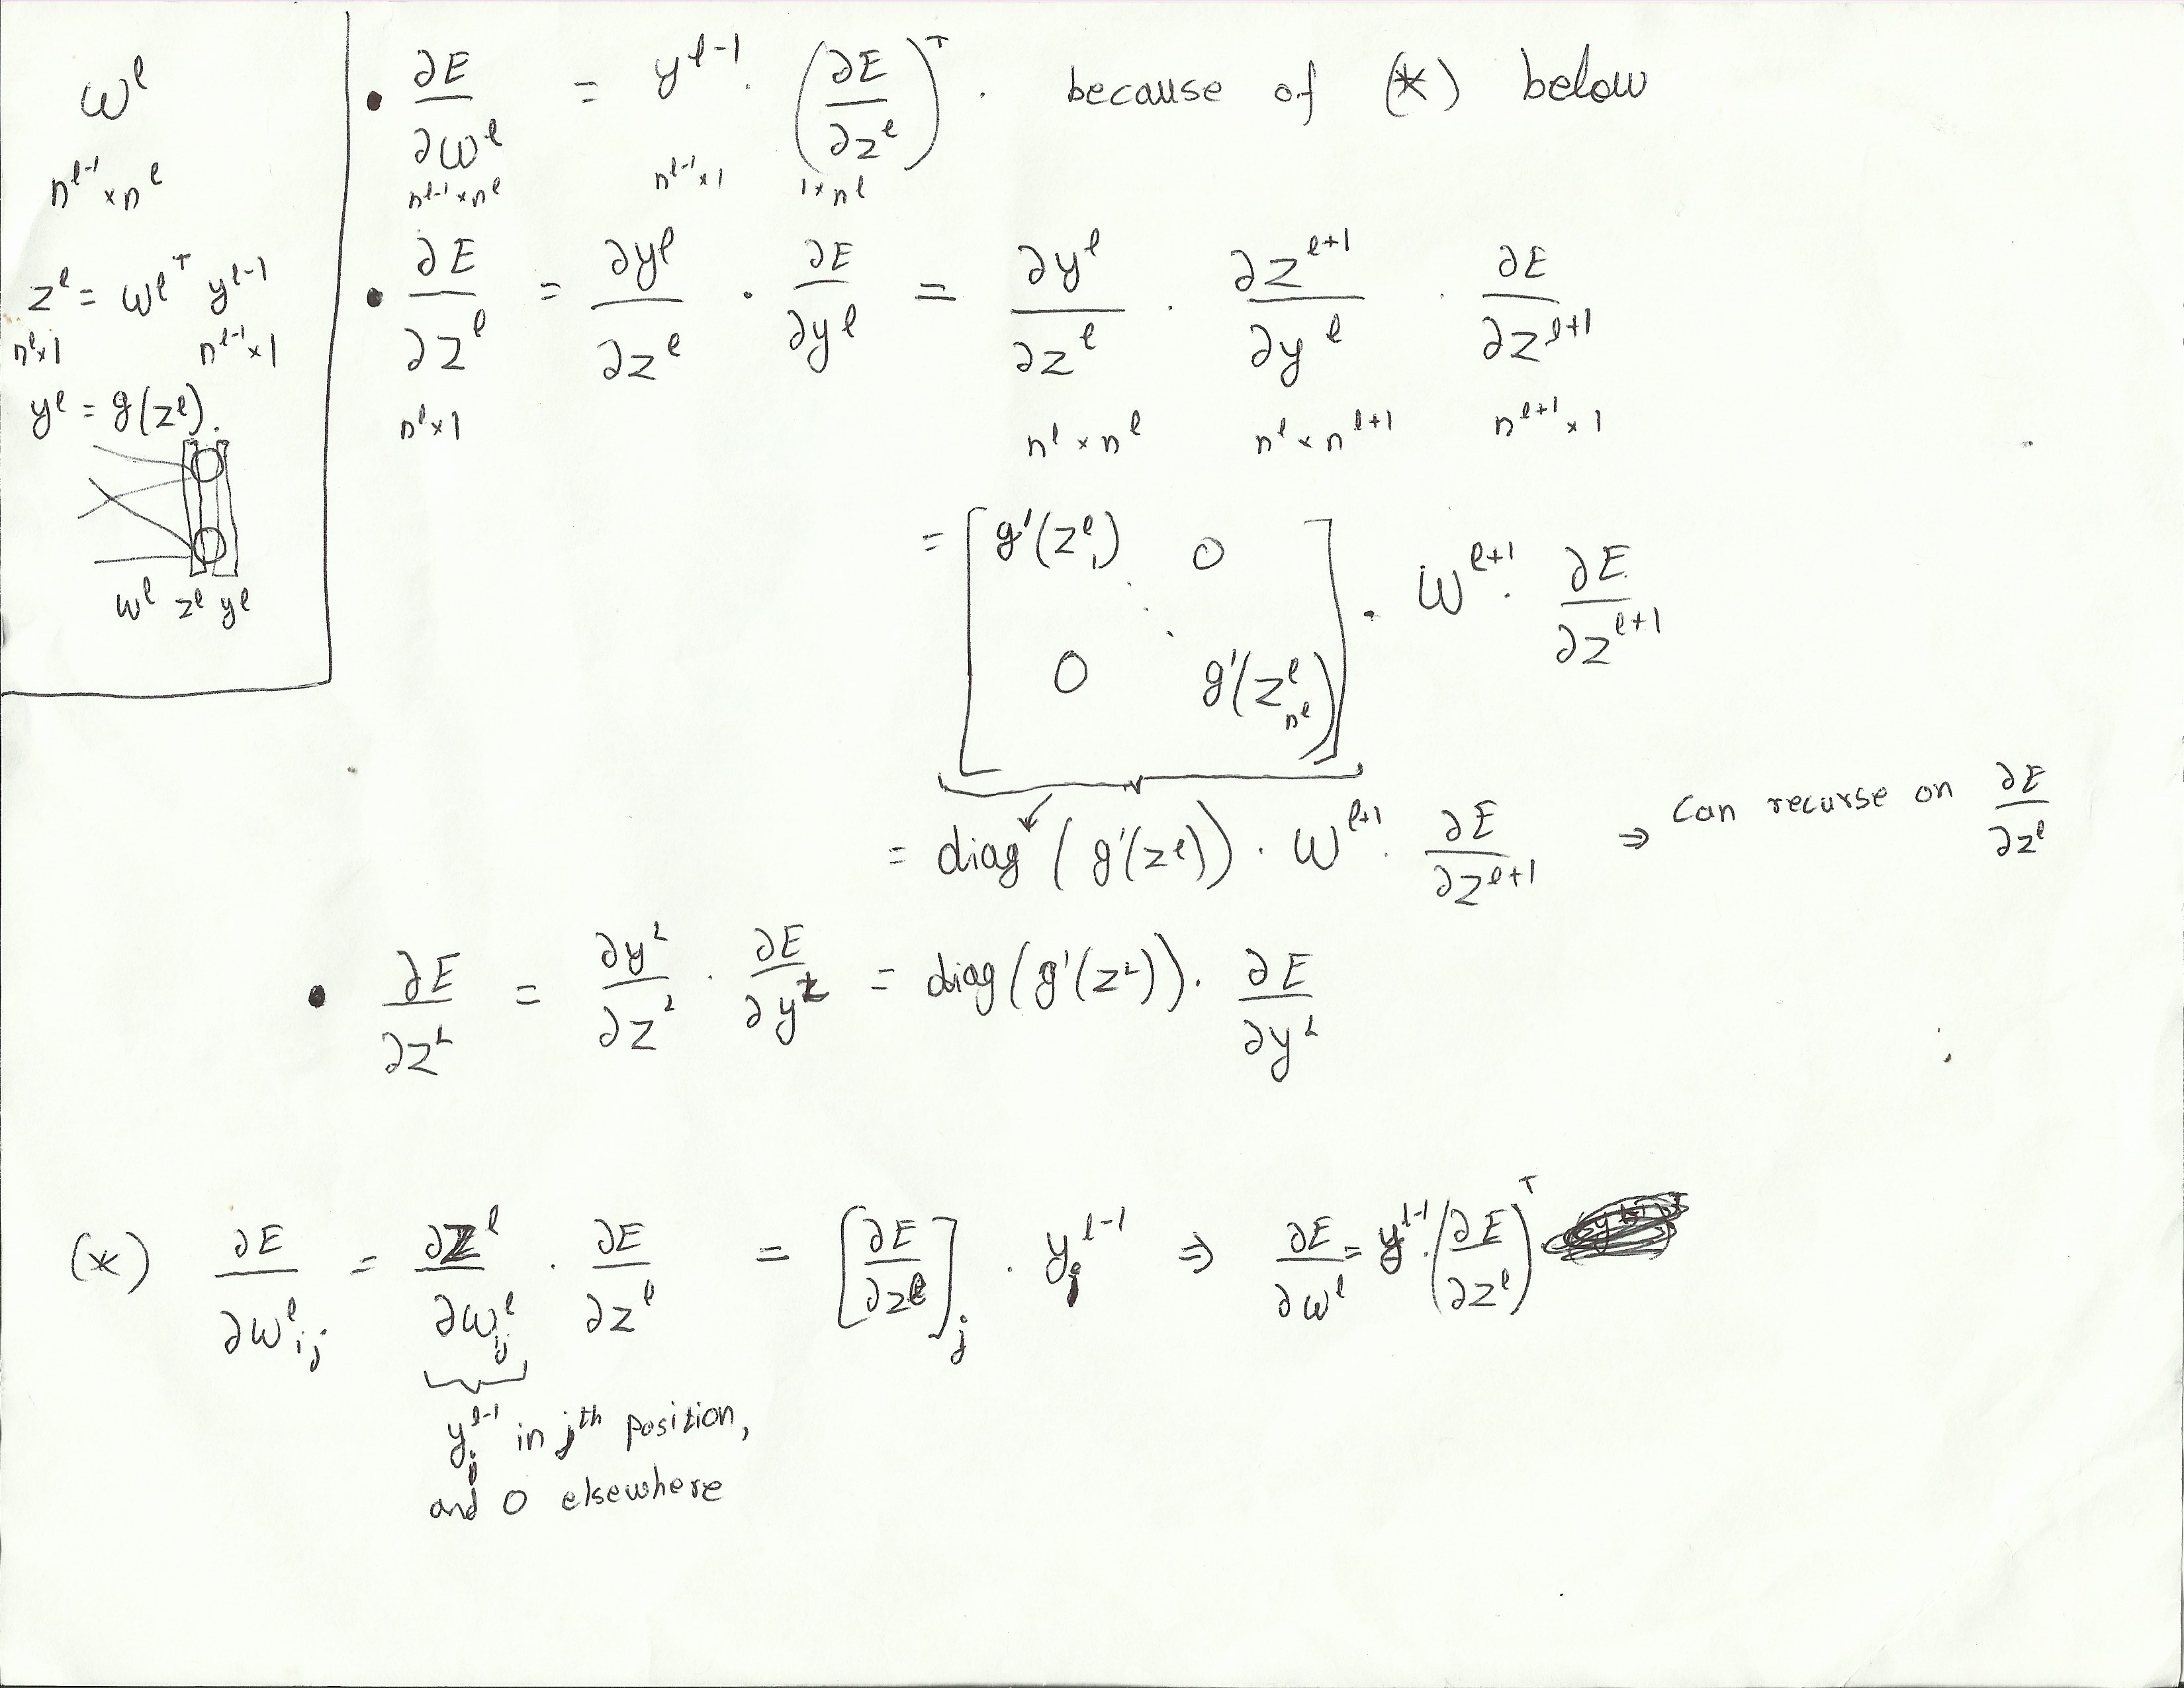 w^l
n^{l-1} × n^l
z^l = w^{l T} y^{l-1}
n^l × 1    n^{l-1} × 1
y^l = g(z^l).
w^l  z^l  y^l
• ∂E/∂w^l = y^{l-1} · (∂E/∂z^l)^T · because of (*) below
n^{l-1} × n^l    n^{l-1} × 1    1 × n^l
• ∂E/∂z^l = ∂y^l/∂z^l · ∂E/∂y^l = ∂y^l/∂z^l · ∂z^{l+1}/∂y^l · ∂E/∂z^{l+1}
n^l × 1    n^l × n^l    n^l × n^{l+1}    n^{l+1} × 1
= [ g'(z^l_1) 0 ⋱ 0 g'(z^l_{n^l}) ] · W^{l+1} · ∂E/∂z^{l+1}
= diag(g'(z^l)) · W^{l+1} · ∂E/∂z^{l+1} ⇒ Can recurse on ∂E/∂z^l
• ∂E/∂z^L = ∂y^L/∂z^L · ∂E/∂y^L = diag(g'(z^L)) · ∂E/∂y^L
(*) ∂E/∂w^l_{ij} = ∂z^l/∂w^l_{ij} · ∂E/∂z^l = [∂E/∂z^l]_j · y_i^{l-1} ⇒ ∂E/∂w^l = y^{l-1} · (∂E/∂z^l)^T
y_i^{l-1} in jth position,
and 0 elsewhere